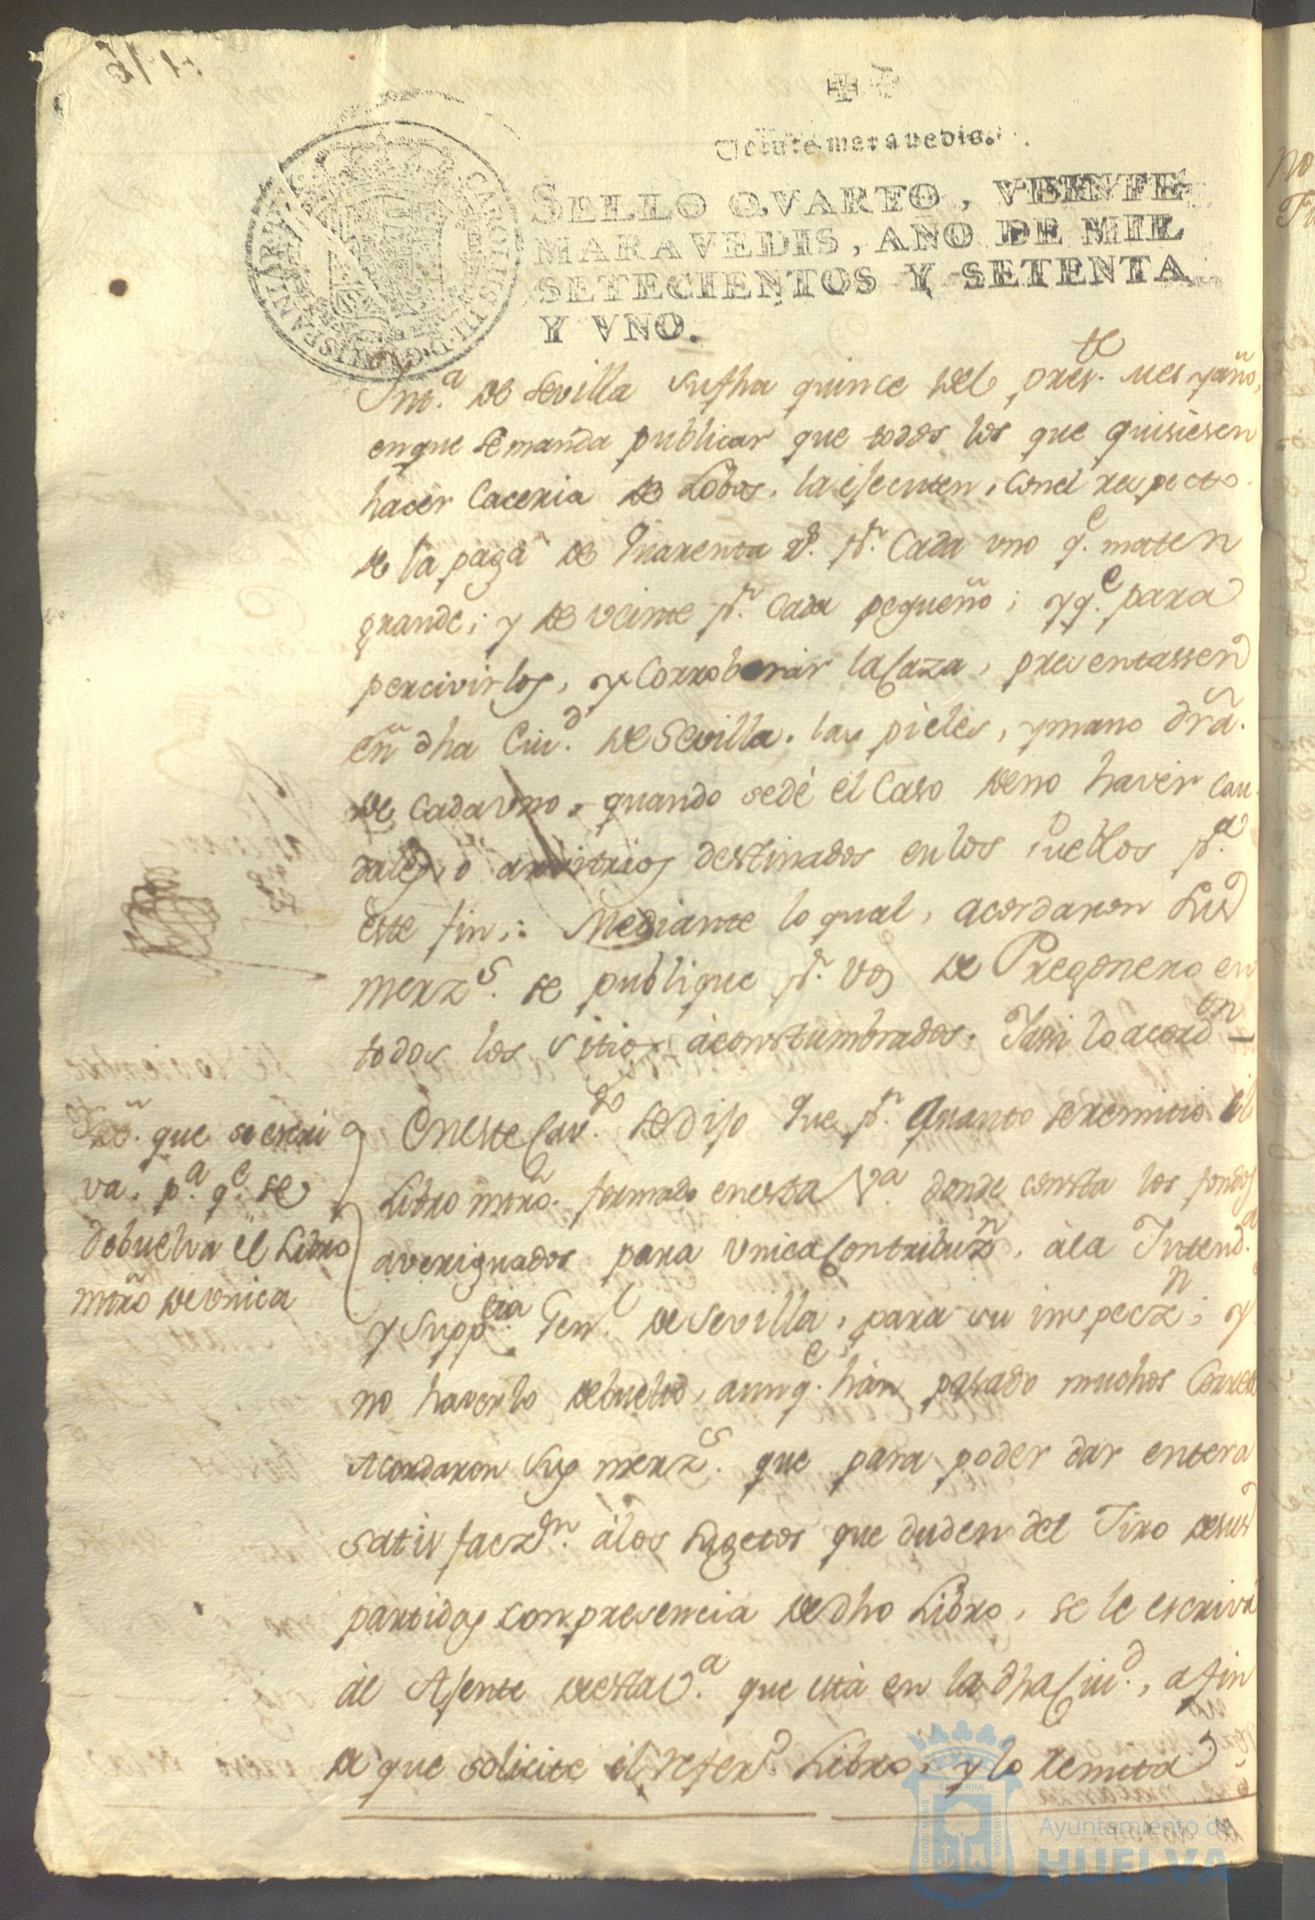 Veinte maravedis.
SELLO QVARTO, VEINTE
MARAVEDIS, AÑO DE MIL
SETECIENTOS Y SETENTA
Y VNO.
CAROLUS III D G HISPANIAR
Int.ª de Sevilla su fha quince del pres.te mes y año,
en que se manda publicar que todos los que quisiesen
hacer Caceria de Lobos, la ejecuten, con el respecto
de la paga de Quarenta r.s p.r Cada uno q.e maten
grande; y de veinte p.r Cada pequeño; y q.e para
percivirlos, y Corroborar la Caza, presentassen
en dha Ciu.d de Sevilla, las pieles, y mano dra.
de cada uno, quando se dé el Caso de no haver cau
dales, o arvitrios destinados en los Pueblos p.a
este fin: Mediante lo qual, acordaron Sus
merz.s se publique p.r voz de Pregonero en
todos los sitios acostumbrados. Y assi lo acord.on
En este Cav.do Se dijo Que p.r quanto se remitio el
Libro mro. formado en esta V.a donde consta los fondos
averiguados para Unica Contribuz.n, a la Intend.a
y Supp.cia Gen.l de Sevilla, para su inspecz.n; y
no haverlo debuelto, aunq.e han pasado muchos Corre
Acordaron Sus merz.s que para poder dar entera
satisfacz.on a los Sugetos que duden del Tiro de sus
partidos con presencia de dho Libro, se le escriva
al Ajente de esta V.a que está en la dha Ciu.d, a fin
de que solicite el refer.do Libro, y lo remita
que se escri
va p.a q.e se
debuelva el Libro
mro de Unica
Ayuntamiento de
HUELVA